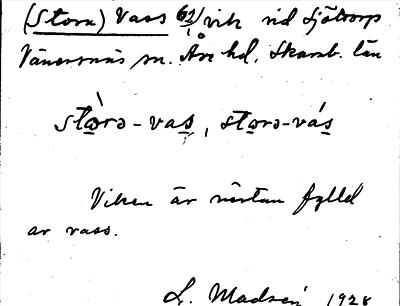 (Stora) Vass 61/ vik vid Sjötorp
Vänersnäs sn. Åse hd. Skarab. län
stòrə-vas, storə-vás
Viken är nästan fylld
av vass.
L. Madsén 1928